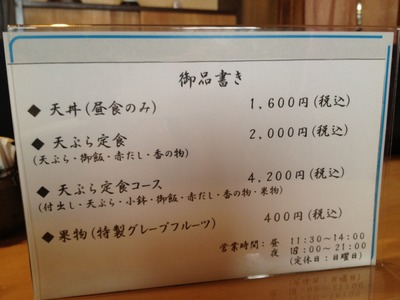 御品書き
◆ 天丼(昼食のみ) 1,600円(税込)
◆ 天ぷら定食 2,000円(税込)
(天ぷら・御飯・赤だし・香の物)
◆ 天ぷら定食コース 4,200円(税込)
(付出し・天ぷら・小鉢・御飯・赤だし・香の物・果物)
◆ 果物(特製グレープフルーツ) 400円(税込)
営業時間: 昼 11:30~14:00
夜 18:00~21:00
(定休日:日曜日)